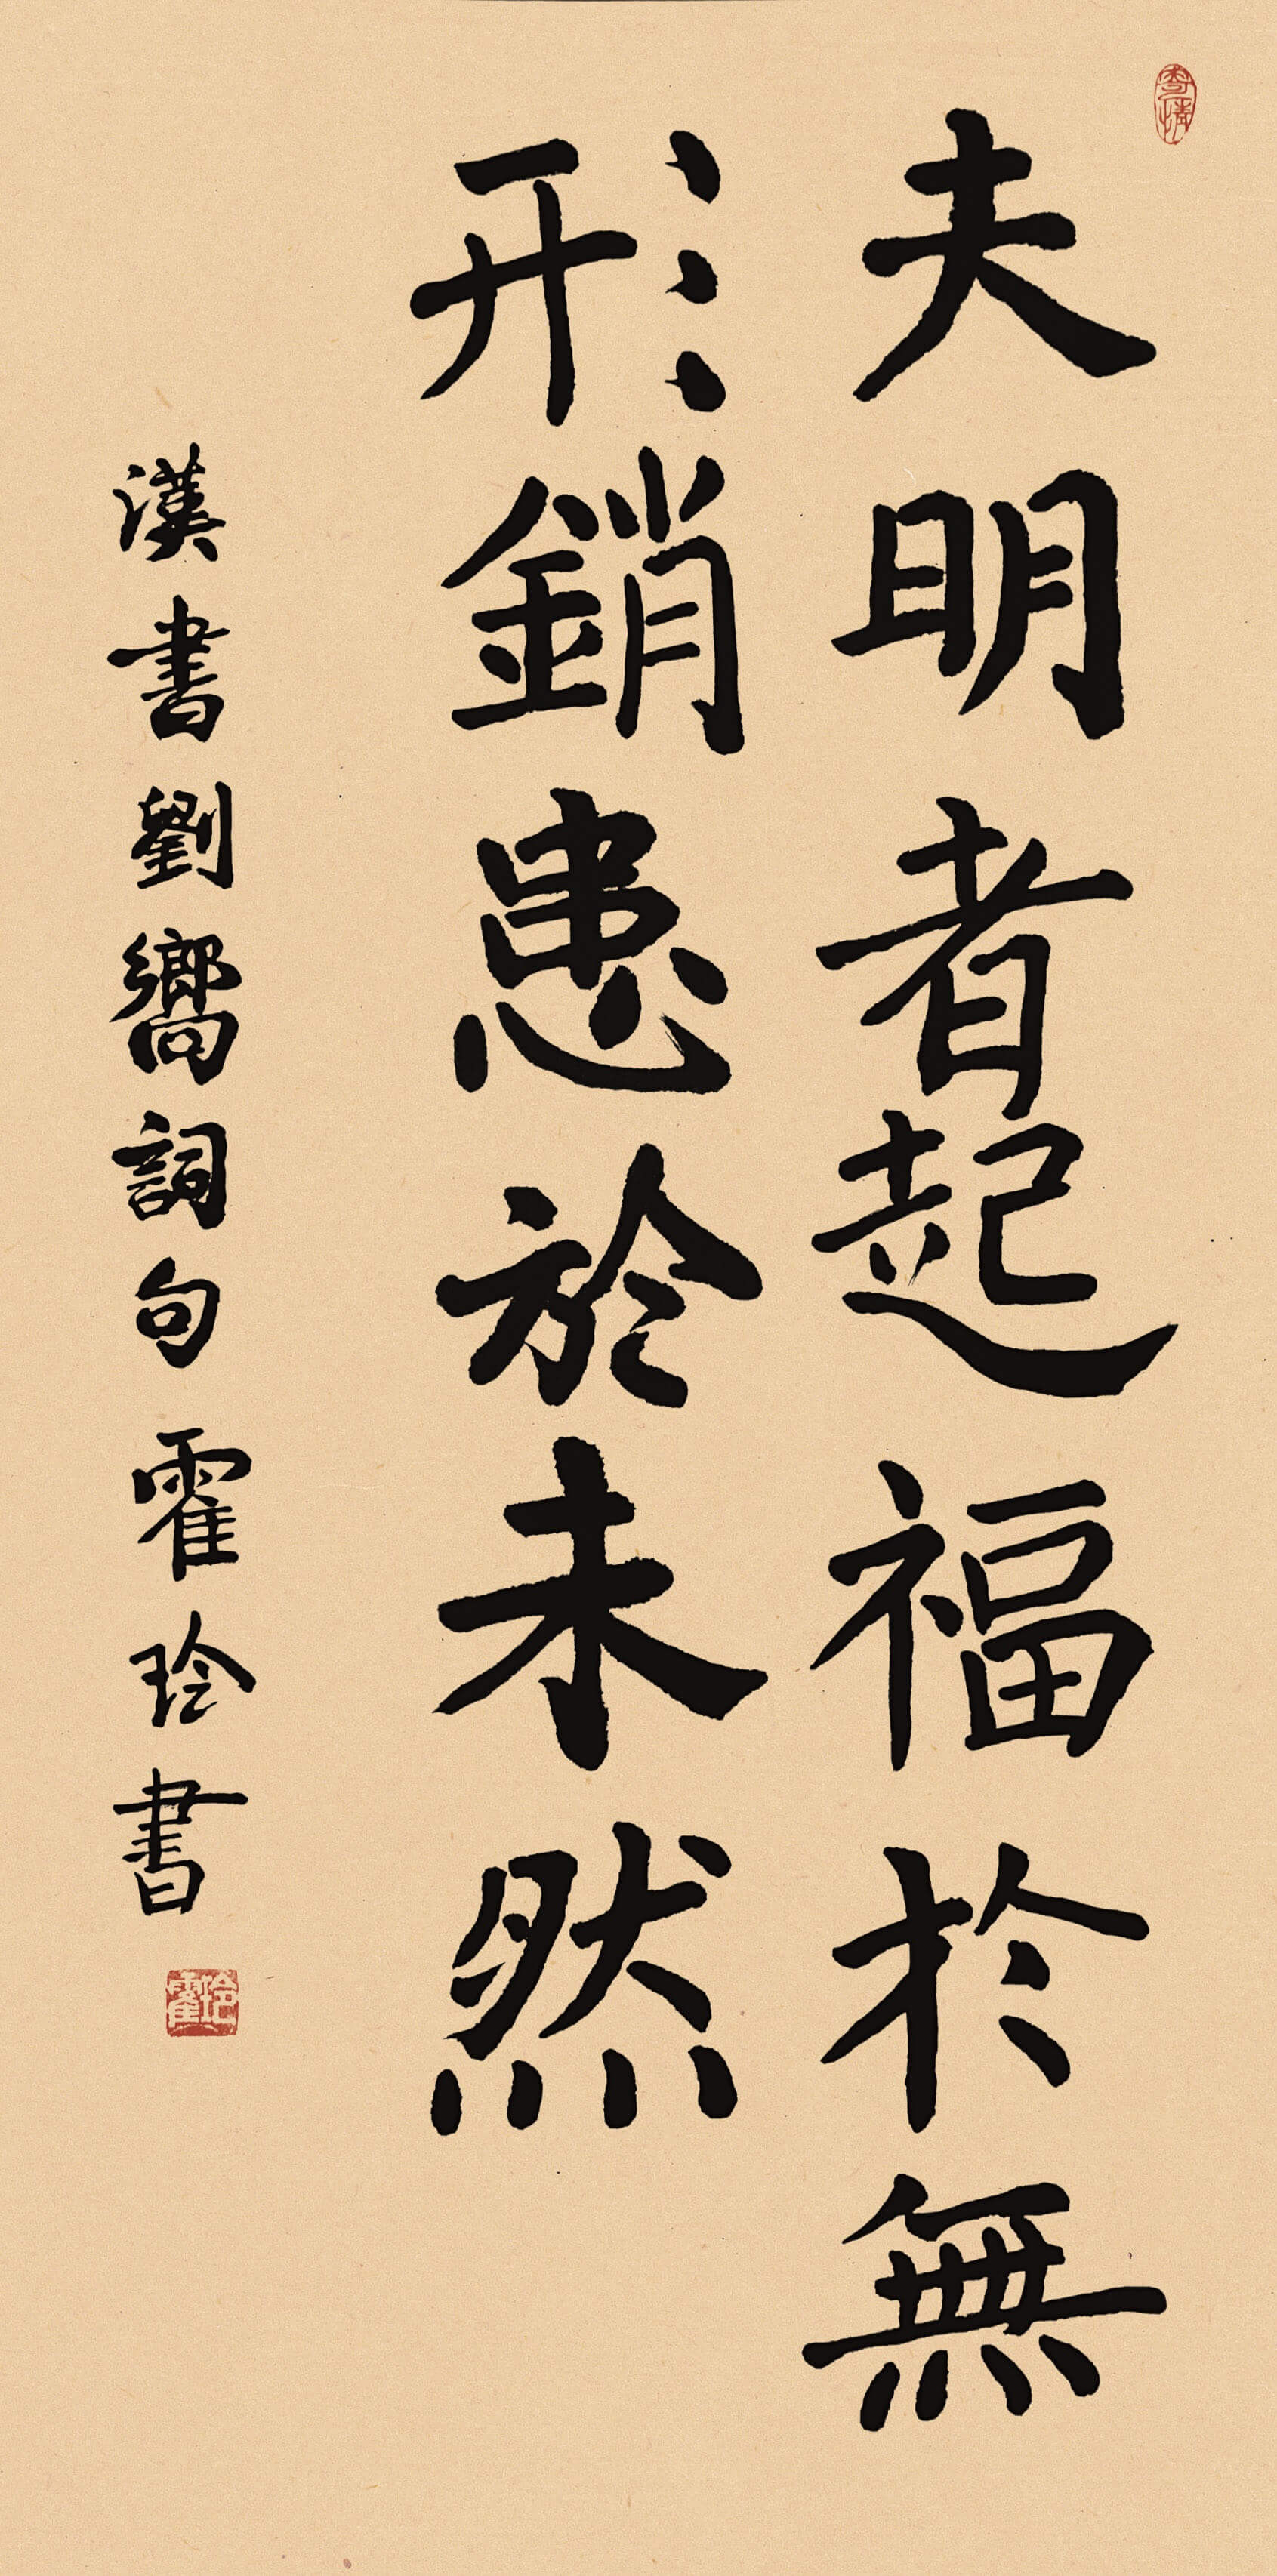 夫明者起福於無
形銷患於未然
漢書劉嚮詞句霍玲書
寄情
霍玲